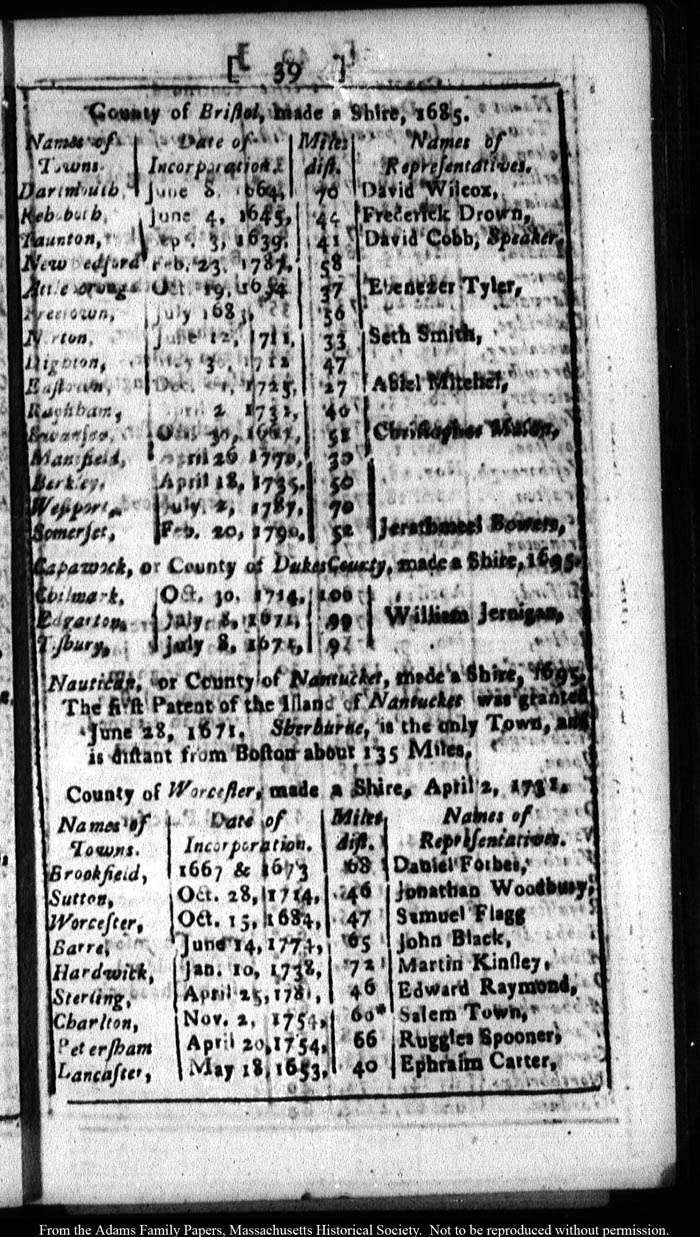 [ 39 ]
County of Bristol, made a Shire, 1685.
Names of Towns. | Date of Incorporation. | Miles dist. | Names of Representatives.
Dartmouth, June 8, 1664, 70 David Wilcox,
Rehoboth, June 4, 1645, 44 Frederick Drown,
Taunton, Sept. 3, 1639, 41 David Cobb, Speaker,
New Bedford Feb. 23, 1787, 58
Attleborough Oct. 19, 1694 37 Ebenezer Tyler,
Freetown, July 1683, 56
Norton, June 12, 1711, 33 Seth Smith,
Dighton, 30, 1712 47
Eastown, Dec. 1725, 27 Abiel Mitchel,
Raynham, April 2 1731, 40
Swansey, Oct. 30, 1667, 51 Christopher Mason,
Mansfield, April 26 1770, 30
Berkley, April 18, 1735. 50
Westport, July 2, 1787, 70
Somerset, Feb. 20, 1790, 52 Jerathmeel Bowers,
Capawock, or County of Dukes County, made a Shire, 1695.
Chilmark, Oct. 30, 1714, 100
Edgarton, July 8, 1671, 99 William Jernigan,
Tisbury, July 8, 1671, 92
Nautican, or County of Nantucket, made a Shire, 1695.
The first Patent of the Island of Nantucket was granted
June 28, 1671. Sherburne, is the only Town, and
is distant from Boston about 135 Miles.
County of Worcester, made a Shire, April 2, 1731.
Names of Towns. | Date of Incorporation. | Miles dist. | Names of Representatives.
Brookfield, 1667 & 1673 68 Daniel Forbes,
Sutton, Oct. 28, 1714, 46 Jonathan Woodbury,
Worcester, Oct. 15, 1684, 47 Samuel Flagg
Barre, June 14, 1774, 65 John Black,
Hardwick, Jan. 10, 1738, 72 Martin Kinsley,
Sterling, April 25, 1781, 46 Edward Raymond,
Charlton, Nov. 2, 1754, 60 Salem Town,
Petersham April 20, 1754, 66 Ruggles Spooner,
Lancaster, May 18, 1653, 40 Ephraim Carter,
From the Adams Family Papers, Massachusetts Historical Society. Not to be reproduced without permission.